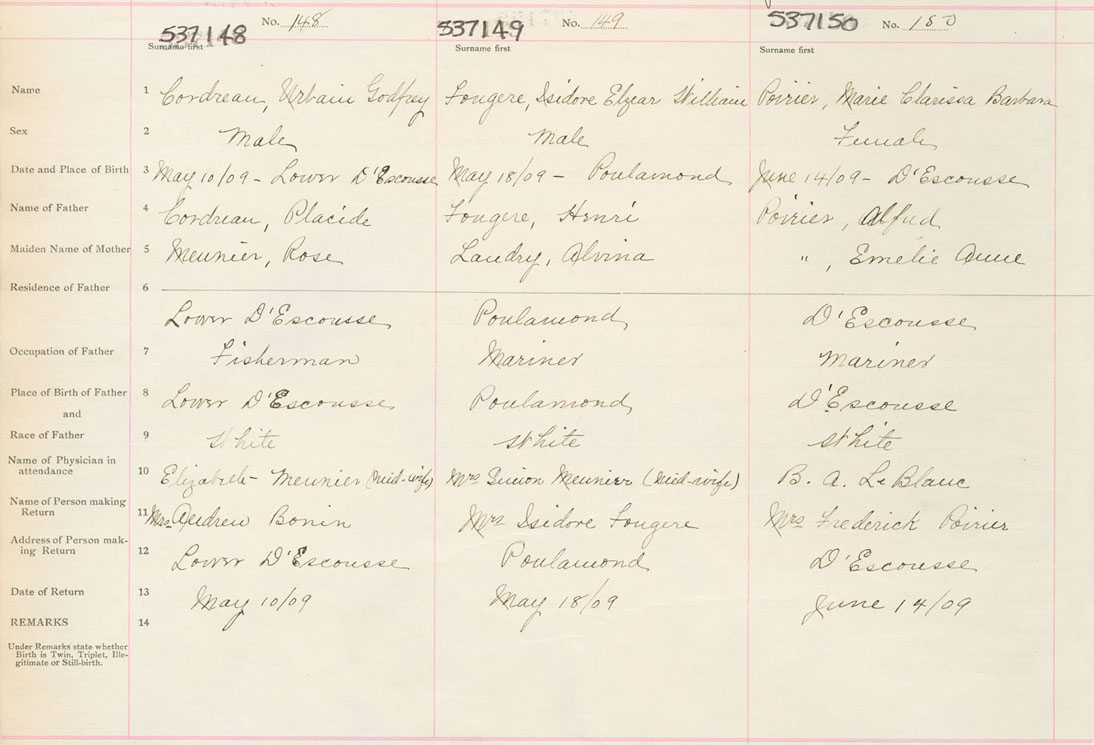 537148 No. 148 537149 No. 149 537150 No. 150
Surname first Surname first Surname first
Name 1 Cordreau, Urbain Godfrey Fougere, Isidore Elzear William Poirier, Marie Clarissa Barbara
Sex 2 Male Male Female
Date and Place of Birth 3 May 10/09 - Lower D'Escousse May 18/09 - Poulamond June 14/09 - D'Escousse
Name of Father 4 Cordreau, Placide Fougere, Henri Poirier, Alfred
Maiden Name of Mother 5 Meunier, Rose Landry, Alvina " , Emelie Anne
Residence of Father 6
Lower D'Escousse Poulamond D'Escousse
Occupation of Father 7 Fisherman Mariner Mariner
Place of Birth of Father 8 Lower D'Escousse Poulamond D'Escousse
and
Race of Father 9 White White White
Name of Physician in
attendance 10 Elizabeth Meunier (Mid-wife) Mrs Meunier (Mid-wife) B. A. LeBlanc
Name of Person making
Return 11 Mrs Andrew Bonin Mrs Isidore Fougere Mrs Frederick Poirier
Address of Person mak-
ing Return 12 Lower D'Escousse Poulamond D'Escousse
Date of Return 13 May 10/09 May 18/09 June 14/09
REMARKS 14
Under Remarks state whether
Birth is Twin, Triplet, Ille-
gitimate or Still-birth.